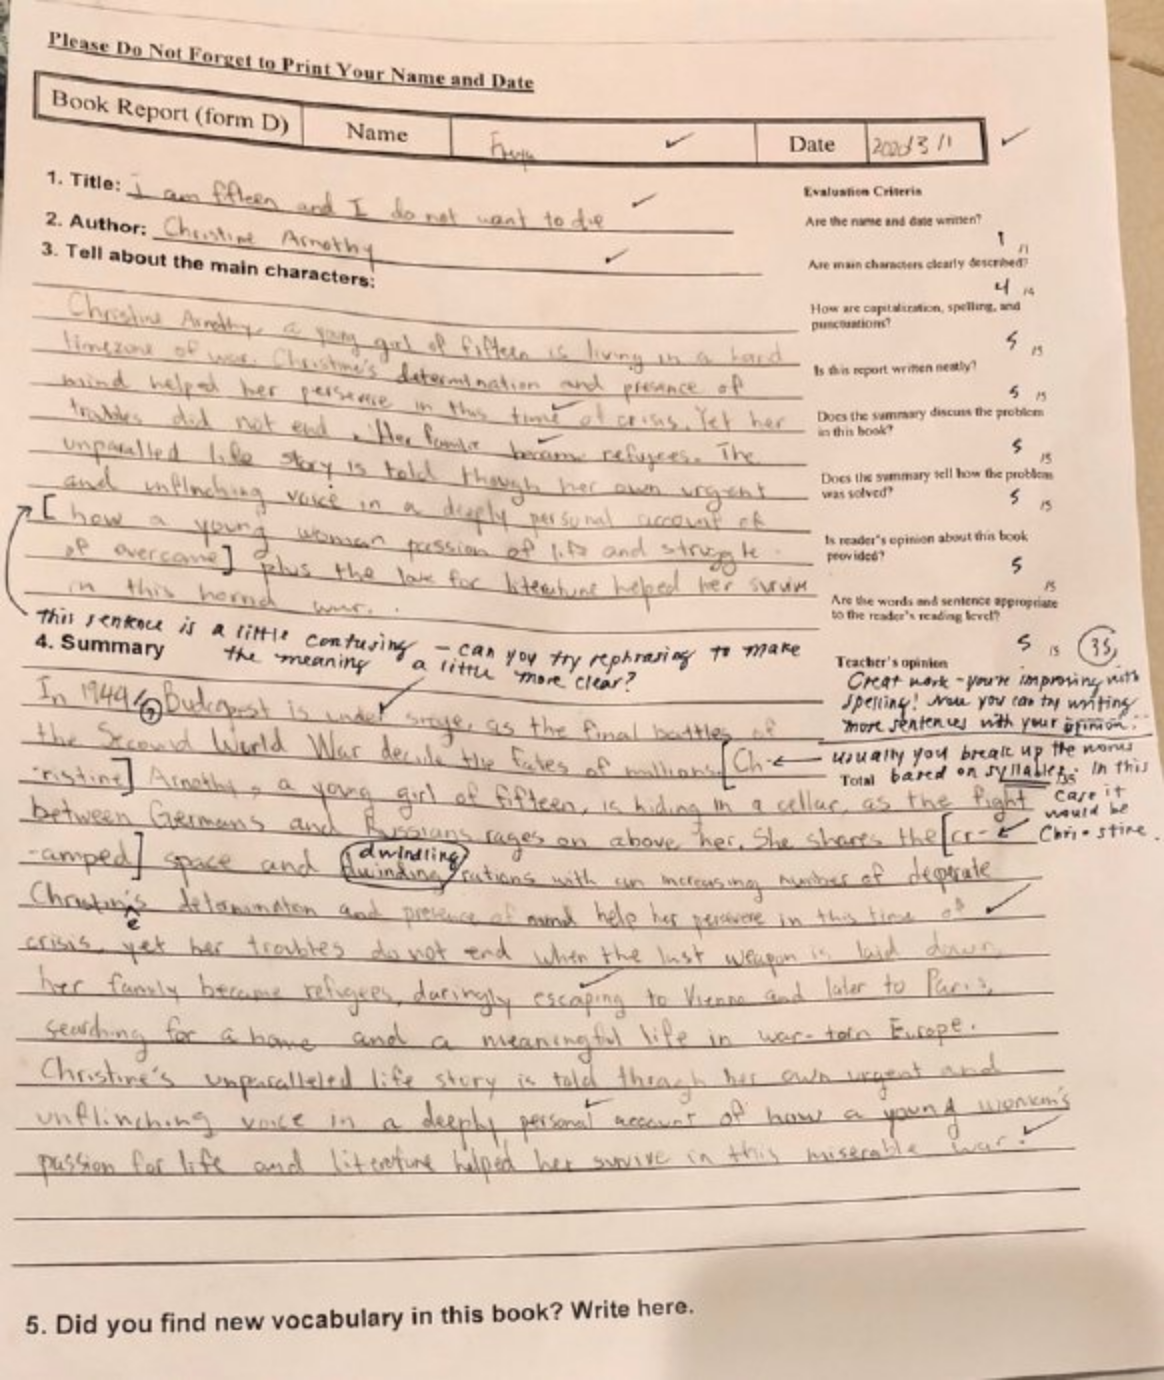 Please Do Not Forget to Print Your Name and Date
Book Report (form D)
Name
Date
2020/3/1
1. Title: I am ffteen and I do not want to die
2. Author: Christine Arnothy
3. Tell about the main characters:
Christine Arnothy, a young girl of fifteen is living in a hard
timezone of war. Christine's determination and presence of
mind helped her persevere in this time of crisis. Yet her
troubles did not end. Her became refugees. The
unparalled life story is told though her own urgent
and unflinching voice in a deeply personal account of
[how a young woman passion of life and struggle
of overcame] plus the love for literature helped her survive
in this horrid war.
this sentence is a little confusing - can you try rephrasing to make
the meaning a little more clear?
4. Summary
In 1944, Budapest is under siege, as the final battles of
the Second World War decide the fates of millions. [Ch-
-ristine] Arnothy, a young girl of fifteen, is hiding in a cellar, as the fight
between Germans and Russians rages on above her. She shares the [cr-
-amped] space and dwinding rations with an increasing number of deperate
dwindling
Christin's determination and presence of mind help her persevere in this time of
e
crisis, yet her troubles do not end when the last weapon is laid down,
her family became refugees, daringly escaping to Vienna and later to Paris,
searching for a home and a meaningful life in war-torn Europe.
Christine's unparalleled life story is told through her own urgent and
unflinching voice in a deeply personal account of how a young woman's
passion for life and literature helped her survive in this miserable war.
5. Did you find new vocabulary in this book? Write here.
Evaluation Criteria
Are the name and date written?
1 /1
Are main characters clearly described?
4 /4
How are capitalization, spelling, and
punctuations?
5 /5
Is this report written neatly?
5 /5
Does the summary discuss the problem
in this book?
5 /5
Does the summary tell how the problem
was solved?
5 /5
Is reader's opinion about this book
provided?
5 /5
Are the words and sentence appropriate
to the reader's reading level?
5 /5
35
Teacher's opinion
Great work - you're improving with
spelling! Now you can try writing
more sentences with your opinion.
usually you break up the words
Total /35
based on syllables. In this
case it
would be
Chris-stine.